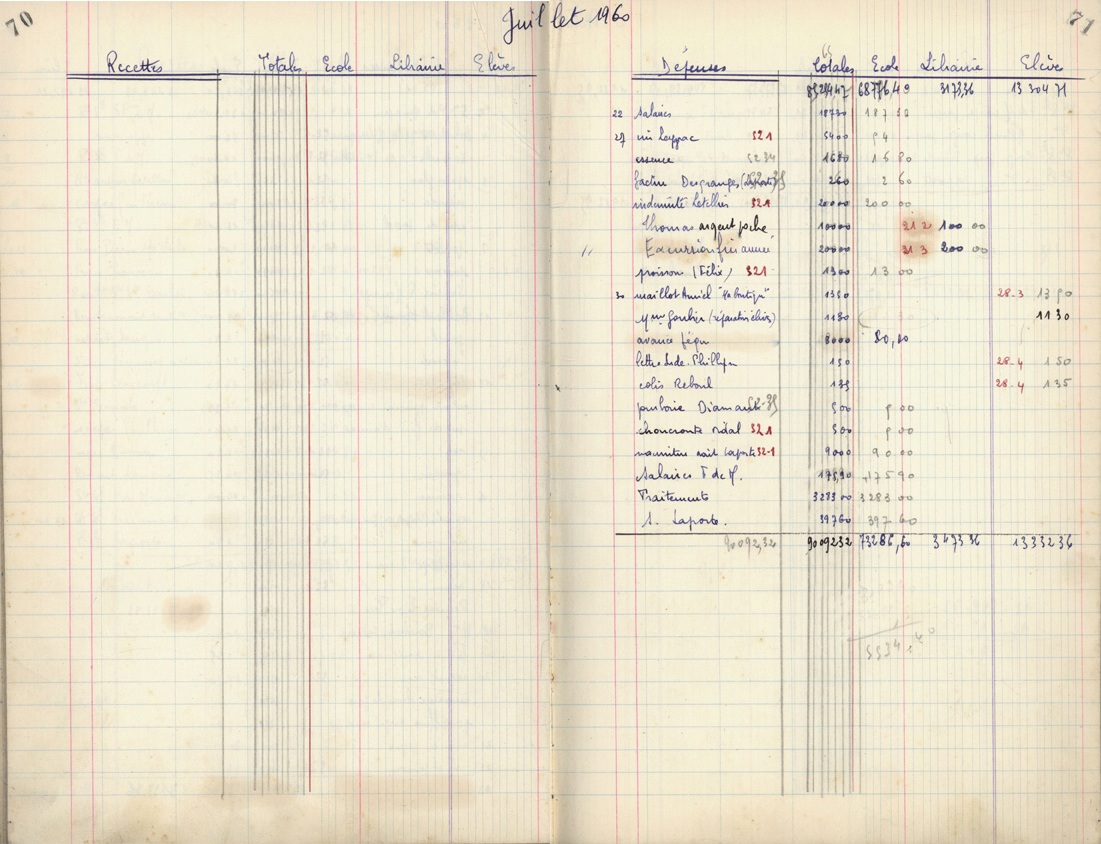 70
Juillet 1960
71
Recettes Totales Ecole Librairie Elèves
Dépenses Totales Ecole Librairie Elève
68776,49 3173,36 13 304 71
22 Salaires 18750 187 50
27 521 5400
essence 5234 1680 16 80
facture Desgranges 260 2 60
indemnité Letellier 521 20000 200 00
Thomas argent poche 10000 21 2 100 00
Excursion fin année 20000 31 3 200 00
poisson (Félix) 521 1300 13 00
30 maillot "la boutique" 1390 28-3 13 90
Mme 1130 11 30
avance 8000 80,00
lettre 150 28-4 1 50
colis Reboul 135 28-4 1 35
Diamant 500 5 00
choucroute 521 500 5 00
nourriture Laporte 521 9000 90 00
Salaires F de M. 17590 175 90
Traitements 328300 3283 00
S. Laporte. 39760 397 60
90092,32 9009232 73286,60 3473 36 1333236
5534,40